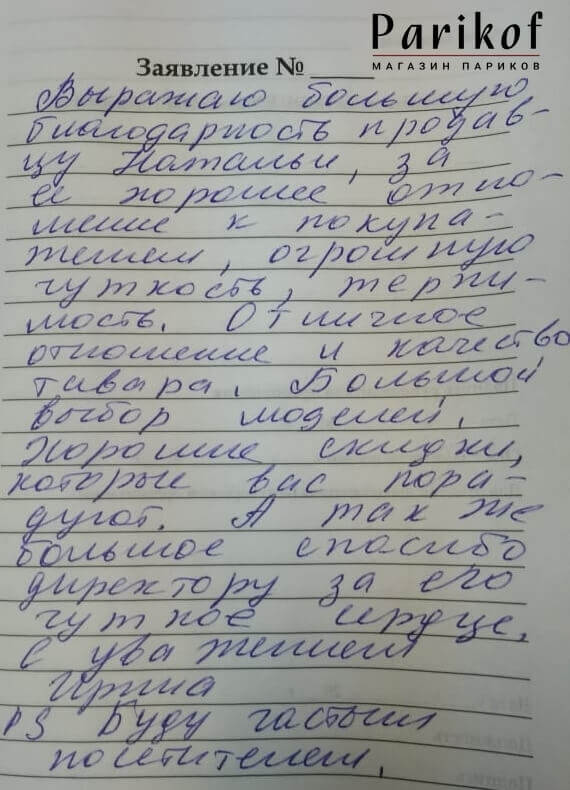 Parikof
МАГАЗИН ПАРИКОВ
Заявление №
Выражаю большую
благодарность продав-
цу Натальи, за
ее хорошее отно-
шение к покупа-
телем, огромную
чуткость, терпи-
мость. Отличное
отношение и качество
тавара. Большой
выбор моделей.
Хорошие скидки,
которые вас пора-
дуют. А так же
большое спасибо
директору за его
чуткое сердце.
С уважением
Ирина
PS Буду частым
посетителем.